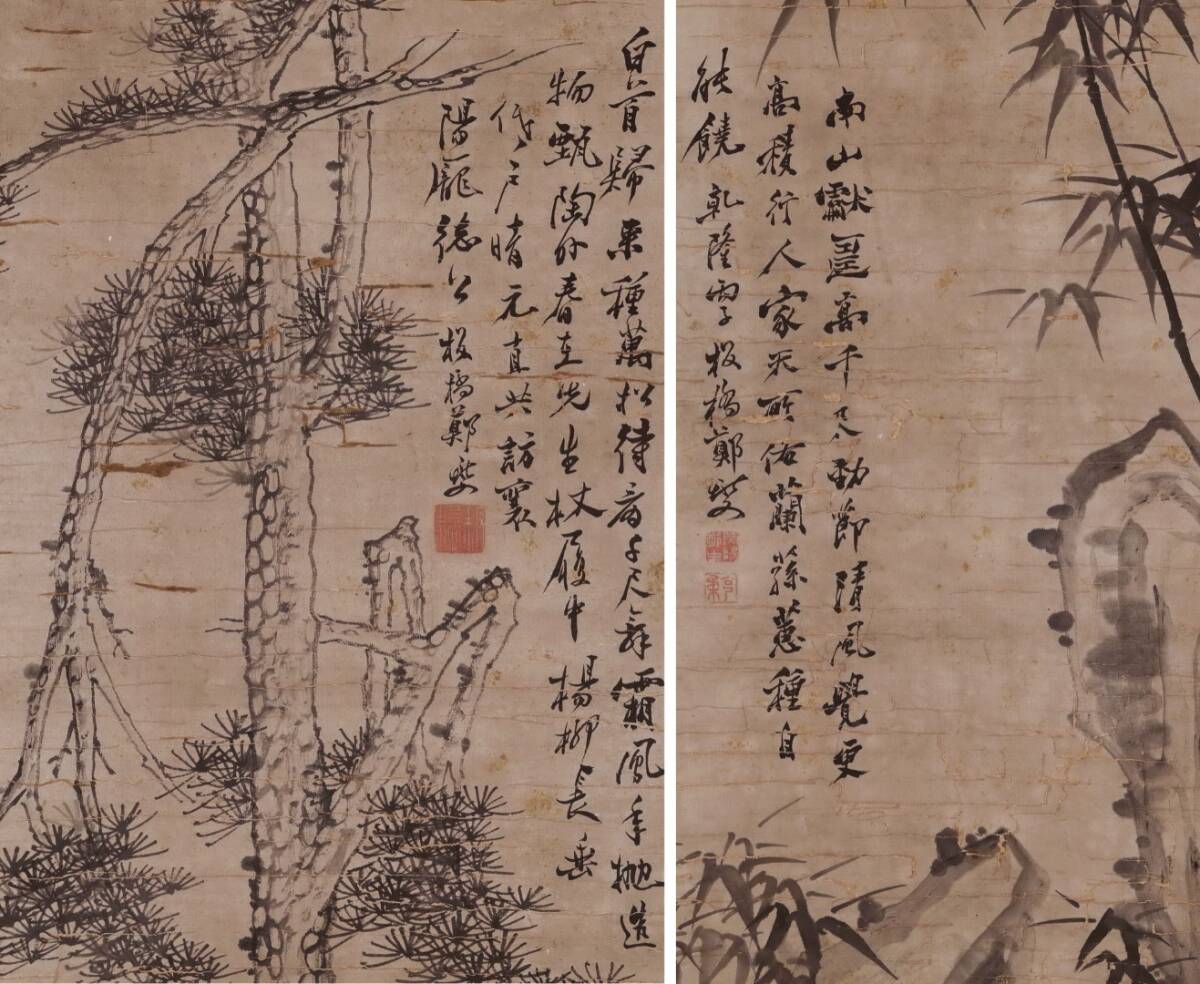 白首歸來種萬松待看千尺舞霜風年拋造
物甄陶外春在先生杖履中楊柳長垂
低戶暗元直共訪襄
陽龐德公 板橋鄭燮
南山獻壽高千尺勁節清風覺更
高積行人家天所佑蘭蓀蕙種自
能饒 乾隆丙子板橋鄭燮